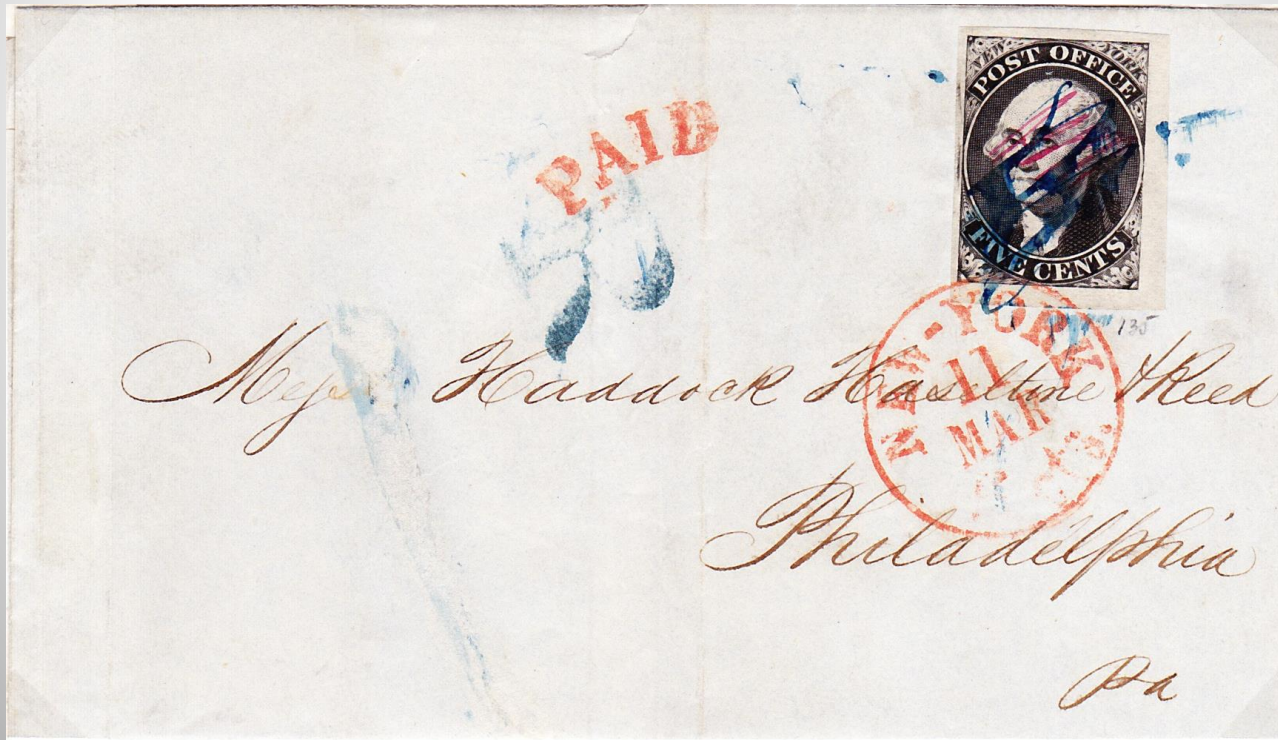 NEW YORK
POST OFFICE
FIVE CENTS
PAID
135
NEW-YORK
11
MAR
5 cts.
Mess Haddock Haseltine & Reed
Philadelphia
Pa